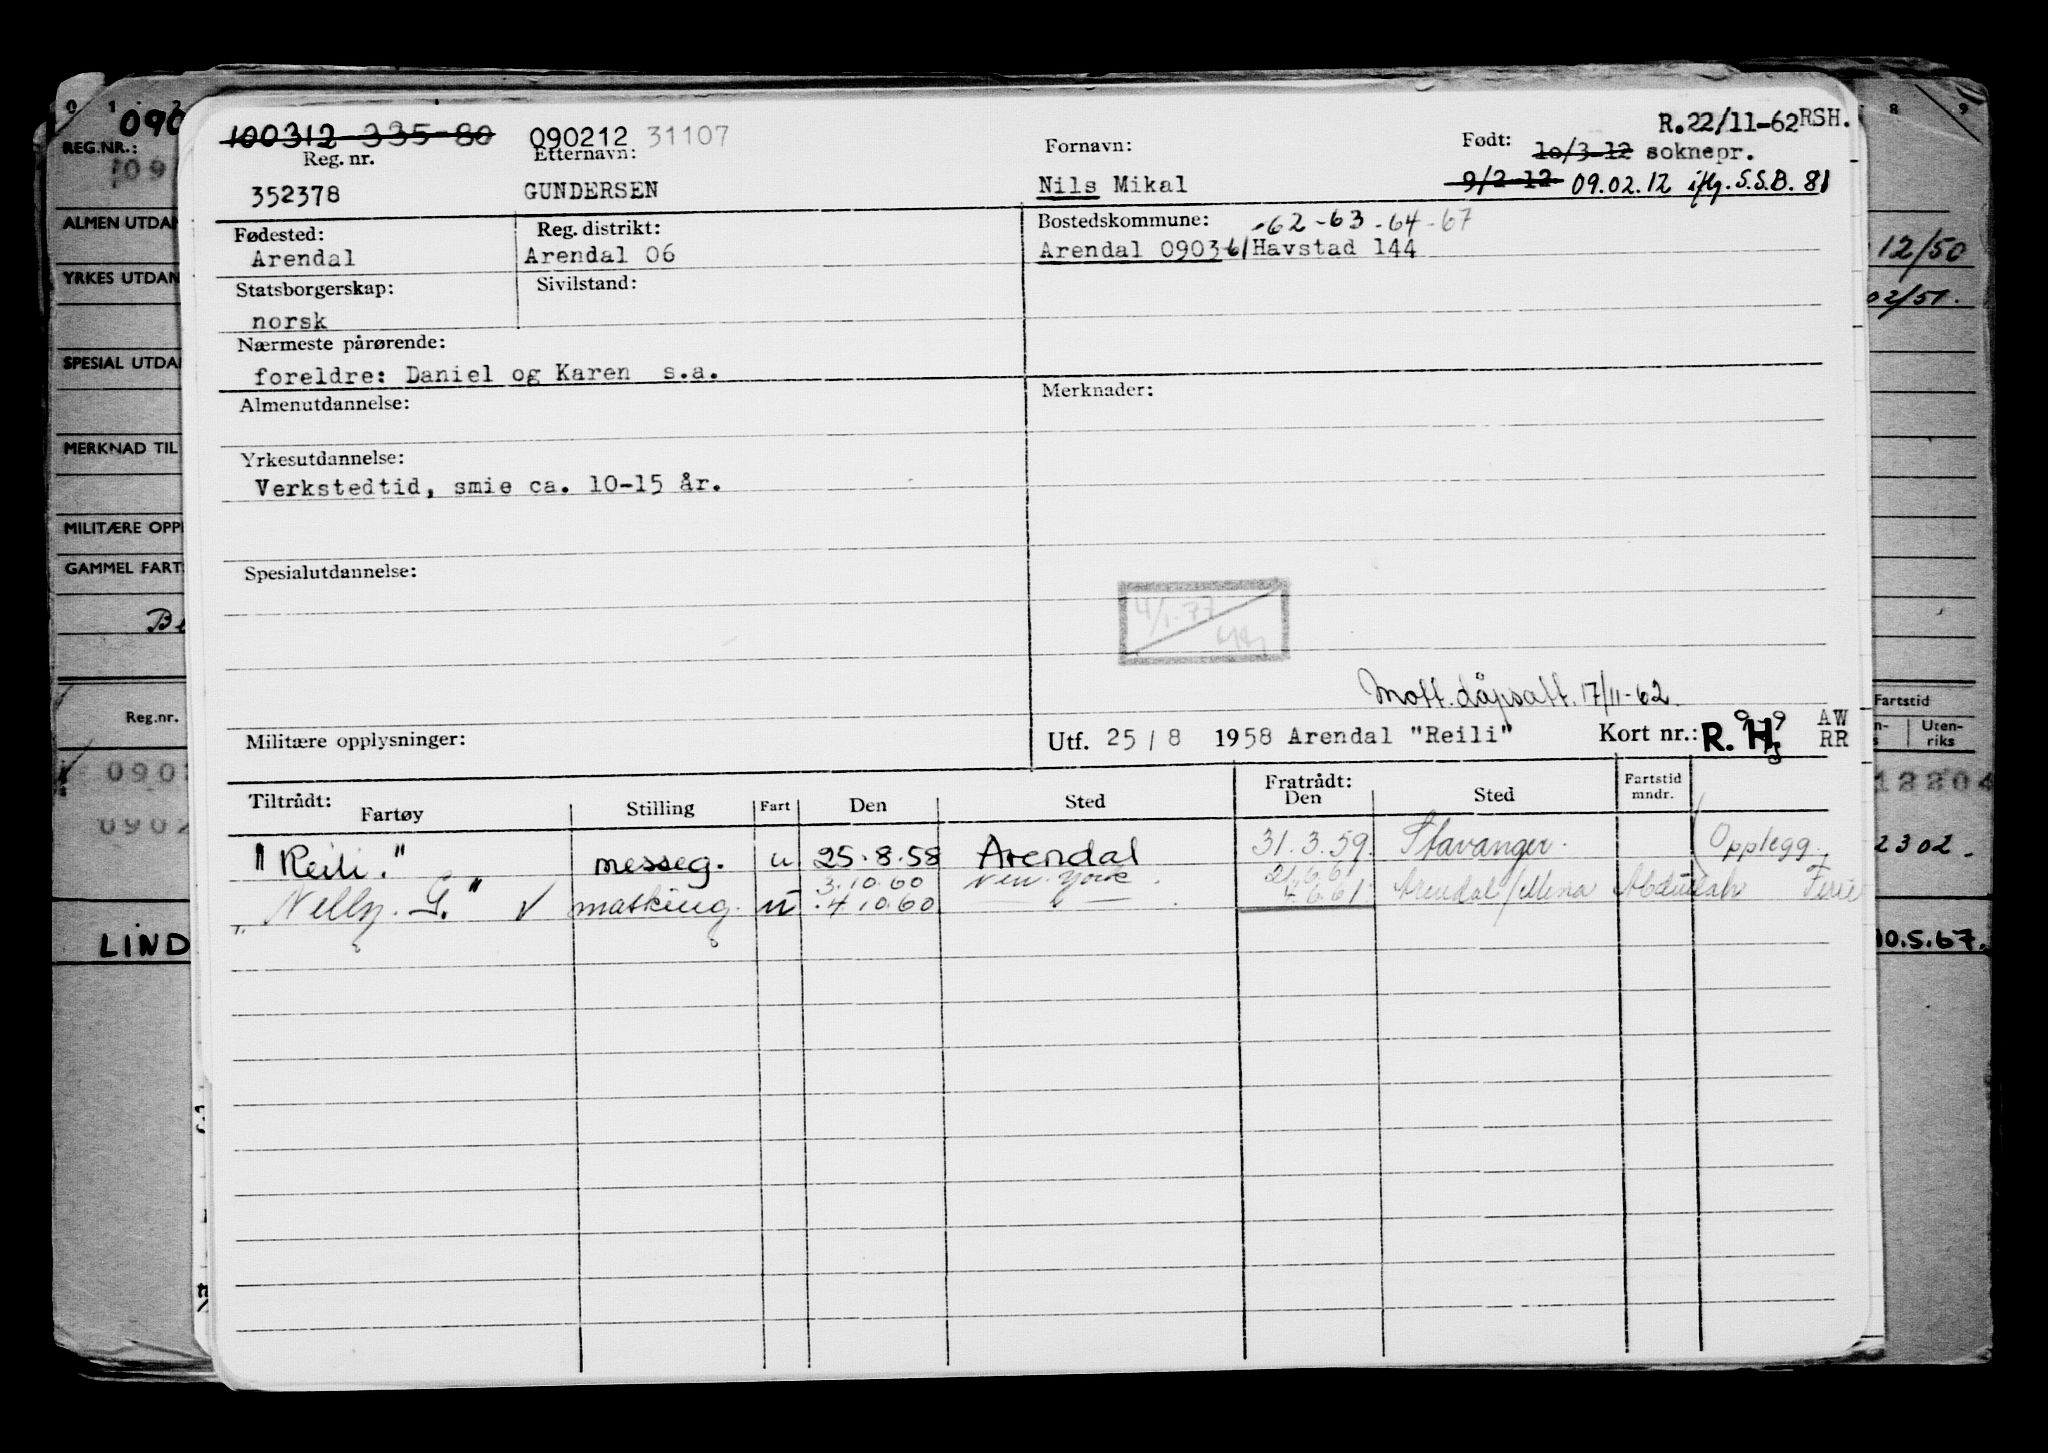 R.22/11-62 RSH.
100312 335-80 090212 31107
Reg. nr. Etternavn: Fornavn: Født: 10/3-12 soknepr.
352378 GUNDERSEN Nils Mikal 9/2-12 09.02.12 iflg. S.S.B. 81
Fødested: Reg. distrikt: Bostedskommune: -62-63-64-67
Arendal Arendal 06 Arendal 0903-61 Havstad 144
Statsborgerskap: Sivilstand:
norsk
Nærmeste pårørende:
foreldre: Daniel og Karen s.a.
Almenutdannelse: Merknader:
Yrkesutdannelse:
Verkstedtid, smie ca. 10-15 år.
Spesialutdannelse:
4/1.77
Mott. dåpsatt. 17/11-62.
Militære opplysninger: Utf. 25 / 8 1958 Arendal "Reili" Kort nr.: R. H. AW
RR
Tiltrådt: Fratrådt: Fartstid
Fartøy Stilling Fart Den Sted Den Sted mndr.
"Reili." messeg. u 25.8.58 Arendal 31.3.59. Stavanger. Opplegg.
3.10.60 New York 21.6.61
"Nelly. G." √ masking. u 4.10.60 4.6.61 Arendal/Mena Abdullah Ferie
0 1 2 8 9
090
REG.NR.:
109
ALMEN UTDAN
12/50
YRKES UTDAN
02/51.
SPESIAL UTDA
MERKNAD TIL
MILITÆRE OPP
GAMMEL FART
Be
Reg.nr. Fartstid
Uten-
riks
090
12204
0902
2302.
LIND 10.5.67.